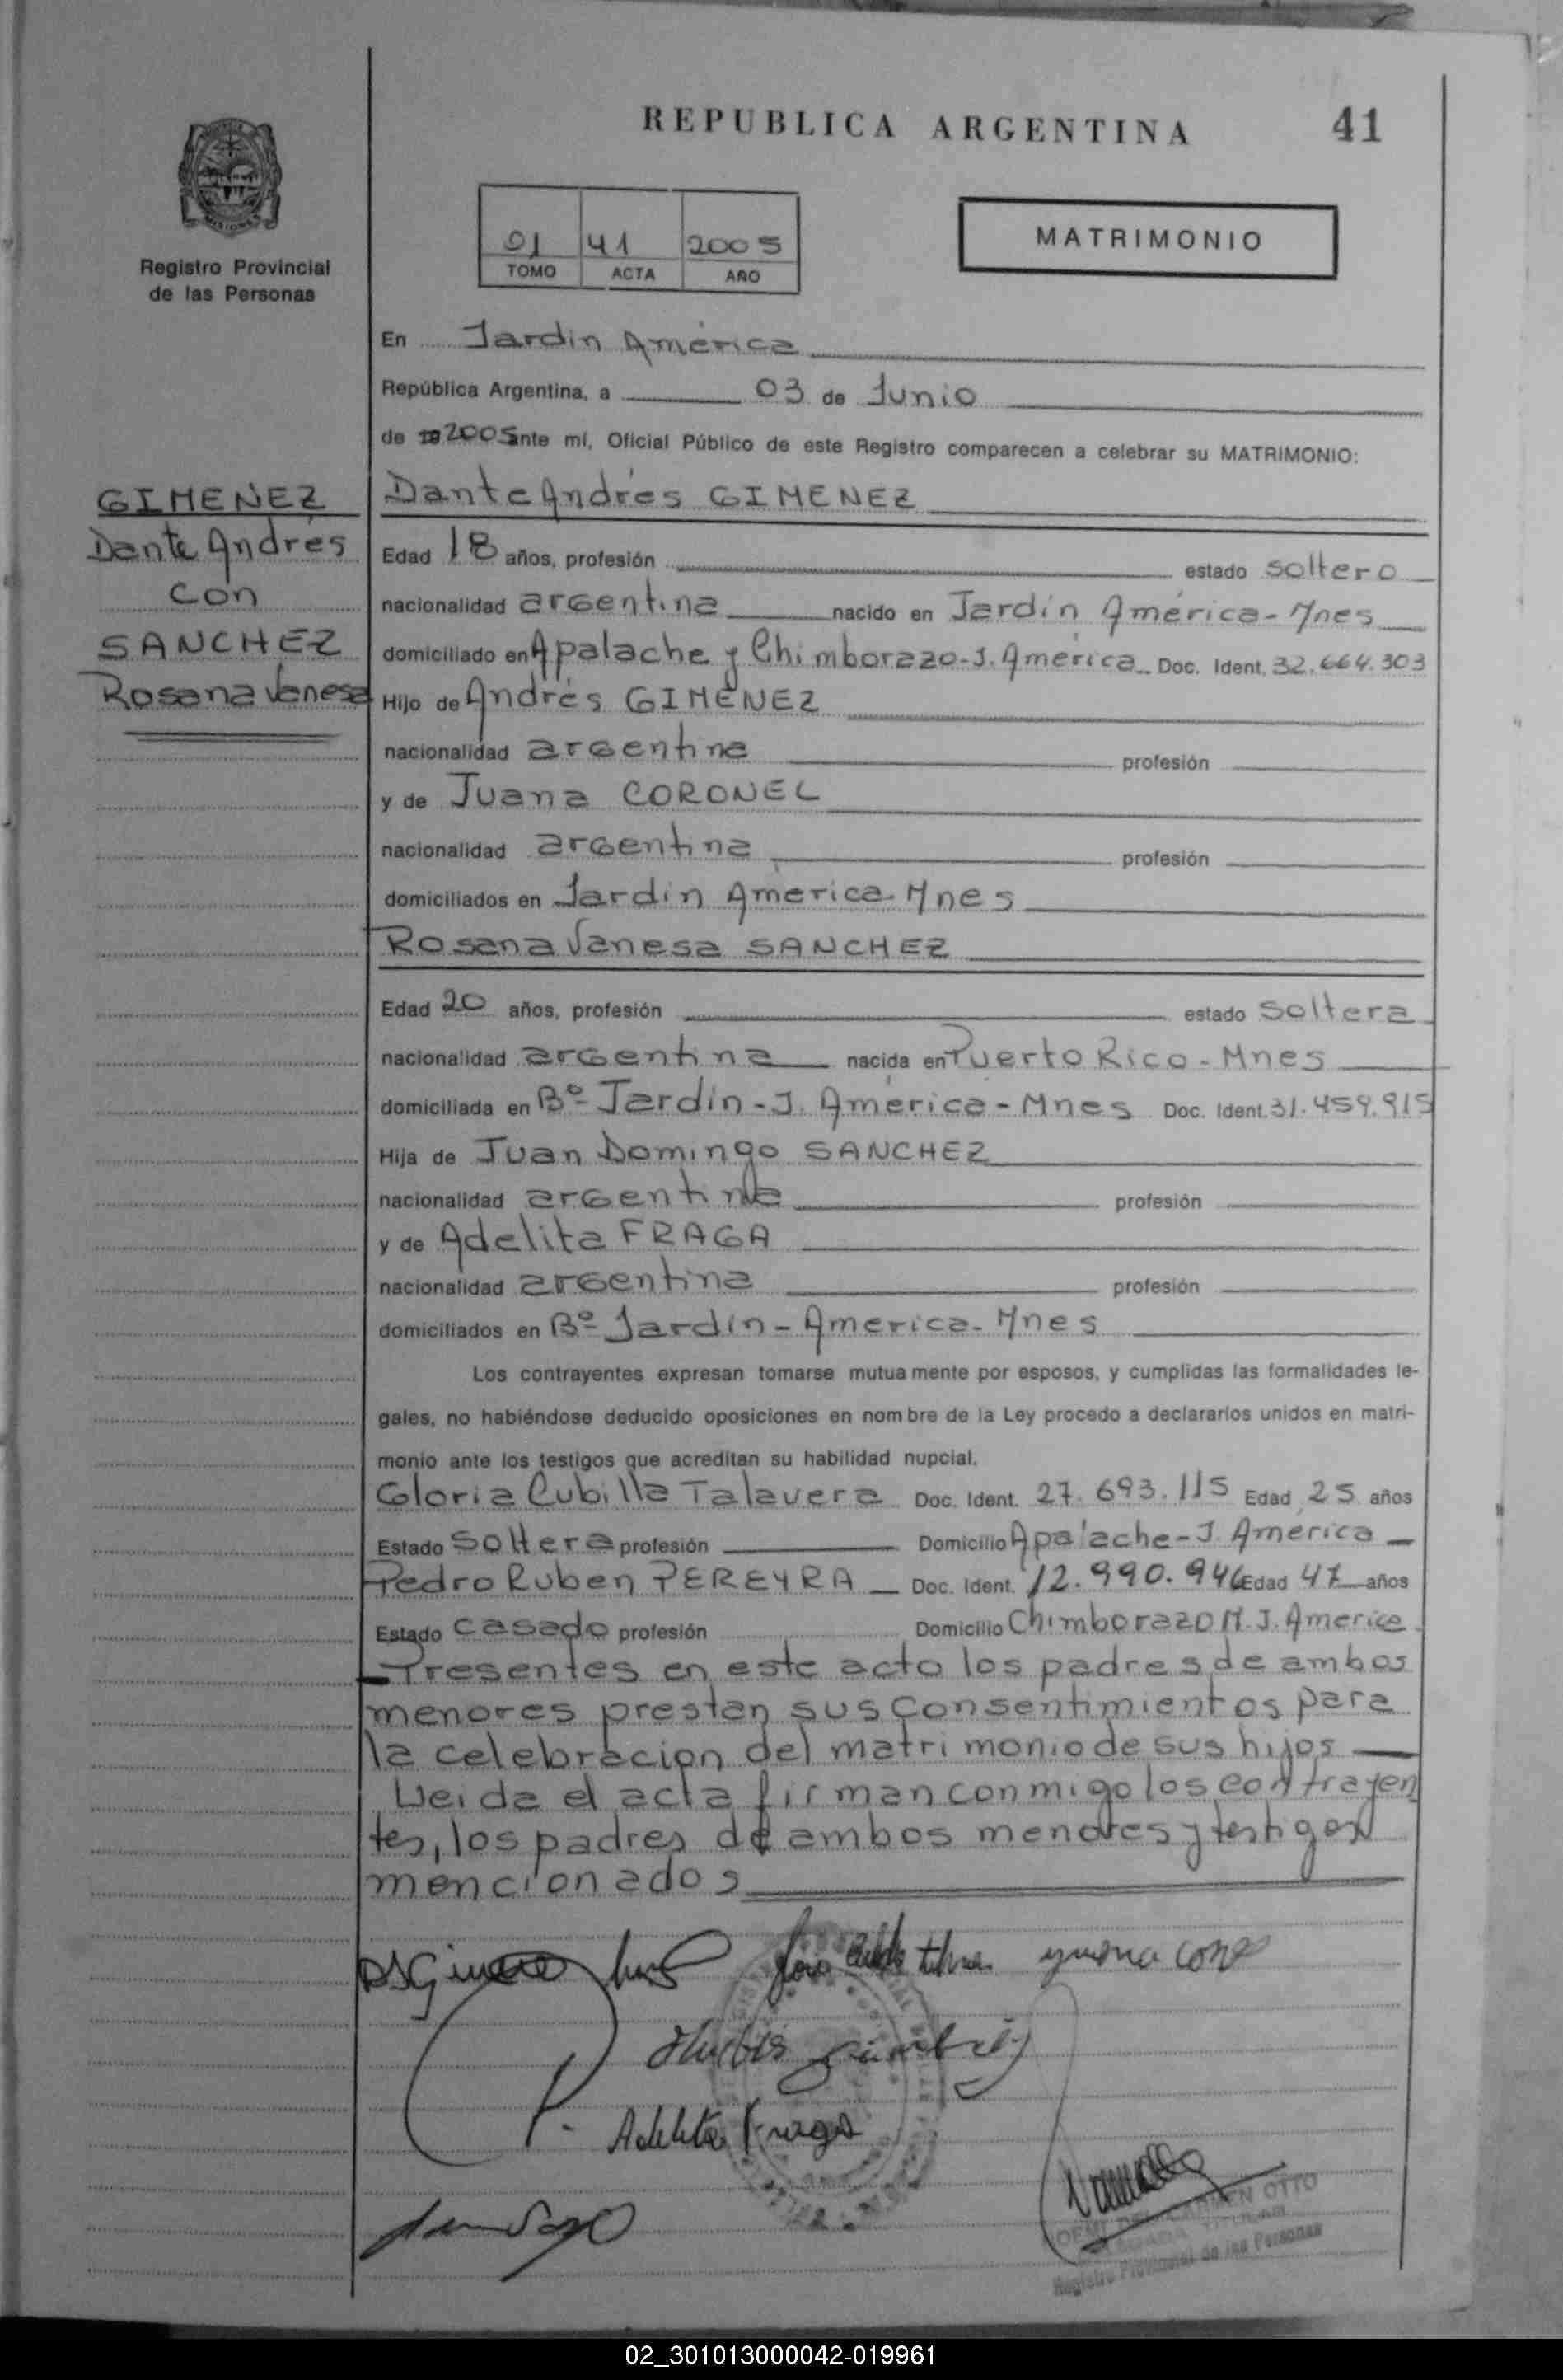 REPUBLICA ARGENTINA 41
MISIONES
Registro Provincial
de las Personas
01 41 2005
TOMO ACTA AÑO
MATRIMONIO
En Jardín América
República Argentina, a 03 de Junio
de 19 2005 ante mí, Oficial Público de este Registro comparecen a celebrar su MATRIMONIO:
GIMENEZ
Dante Andrés
con
SANCHEZ
Rosana Vanesa
Dante Andrés GIMENEZ
Edad 18 años, profesión estado soltero
nacionalidad argentina nacido en Jardín América - Mnes
domiciliado en Apalache y Chimborazo - J. América Doc. Ident. 32.664.303
Hijo de Andrés GIMENEZ
nacionalidad argentina profesión
y de Juana CORONEL
nacionalidad argentina profesión
domiciliados en Jardín América - Mnes
Rosana Vanesa SANCHEZ
Edad 20 años, profesión estado soltera
nacionalidad argentina nacida en Puerto Rico - Mnes
domiciliada en Bº Jardín - J. América - Mnes Doc. Ident. 31.459.915
Hija de Juan Domingo SANCHEZ
nacionalidad argentina profesión
y de Adelita FRAGA
nacionalidad argentina profesión
domiciliados en Bº Jardín - America - Mnes
Los contrayentes expresan tomarse mutuamente por esposos, y cumplidas las formalidades le-
gales, no habiéndose deducido oposiciones en nombre de la Ley procedo a declararlos unidos en matri-
monio ante los testigos que acreditan su habilidad nupcial.
Gloria Cubilla Talavera Doc. Ident. 27.693.115 Edad 25 años
Estado soltera profesión Domicilio Apalache - J. América
Pedro Ruben PEREYRA Doc. Ident. 12.990.946 Edad 47 años
Estado casado profesión Domicilio Chimborazo M. J. America
Presentes en este acto los padres de ambos
menores prestan sus consentimientos para
la celebracion del matrimonio de sus hijos
Leida el acta firman conmigo los contrayen
tes, los padres de ambos menores y testigos
mencionados
Adelita Fraga
DEL CARMEN OTTO
Registro Provincial de las Personas
02_301013000042-019961